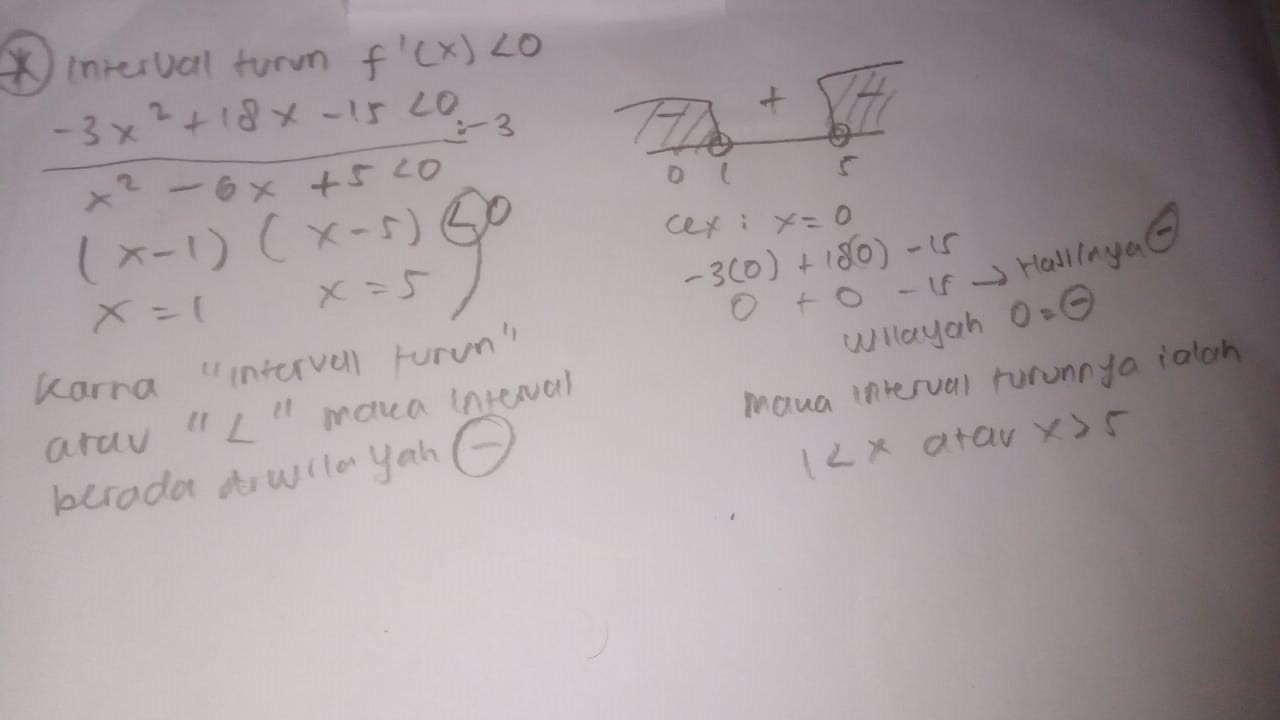 * interval turun f'(x) <0
-3x² + 18x - 15 <0 :-3
x² - 6x + 5 <0
(x-1) (x-5) < 0
x = 1 x = 5
karna "intervall turun"
atau "<" maka interval
berada wilayah -
- + -
0 1 5
cek : x = 0
-3(0) + 18(0) - 15
0 + 0 - 15 → Hasilnya -
wilayah 0 = -
maka interval turunnya ialah
1 < x atau x > 5